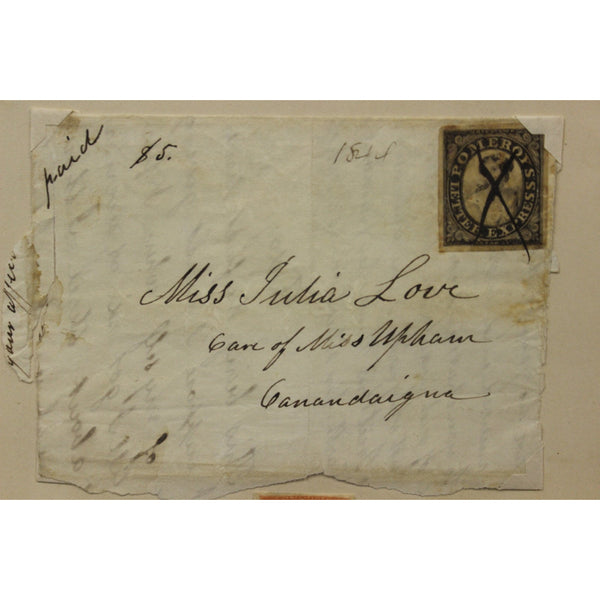 paid
$5.
1844
POMEROY'S
LETTER EXPRESS
Miss Julia Love
Care of Miss Upham
Canandaigna
your